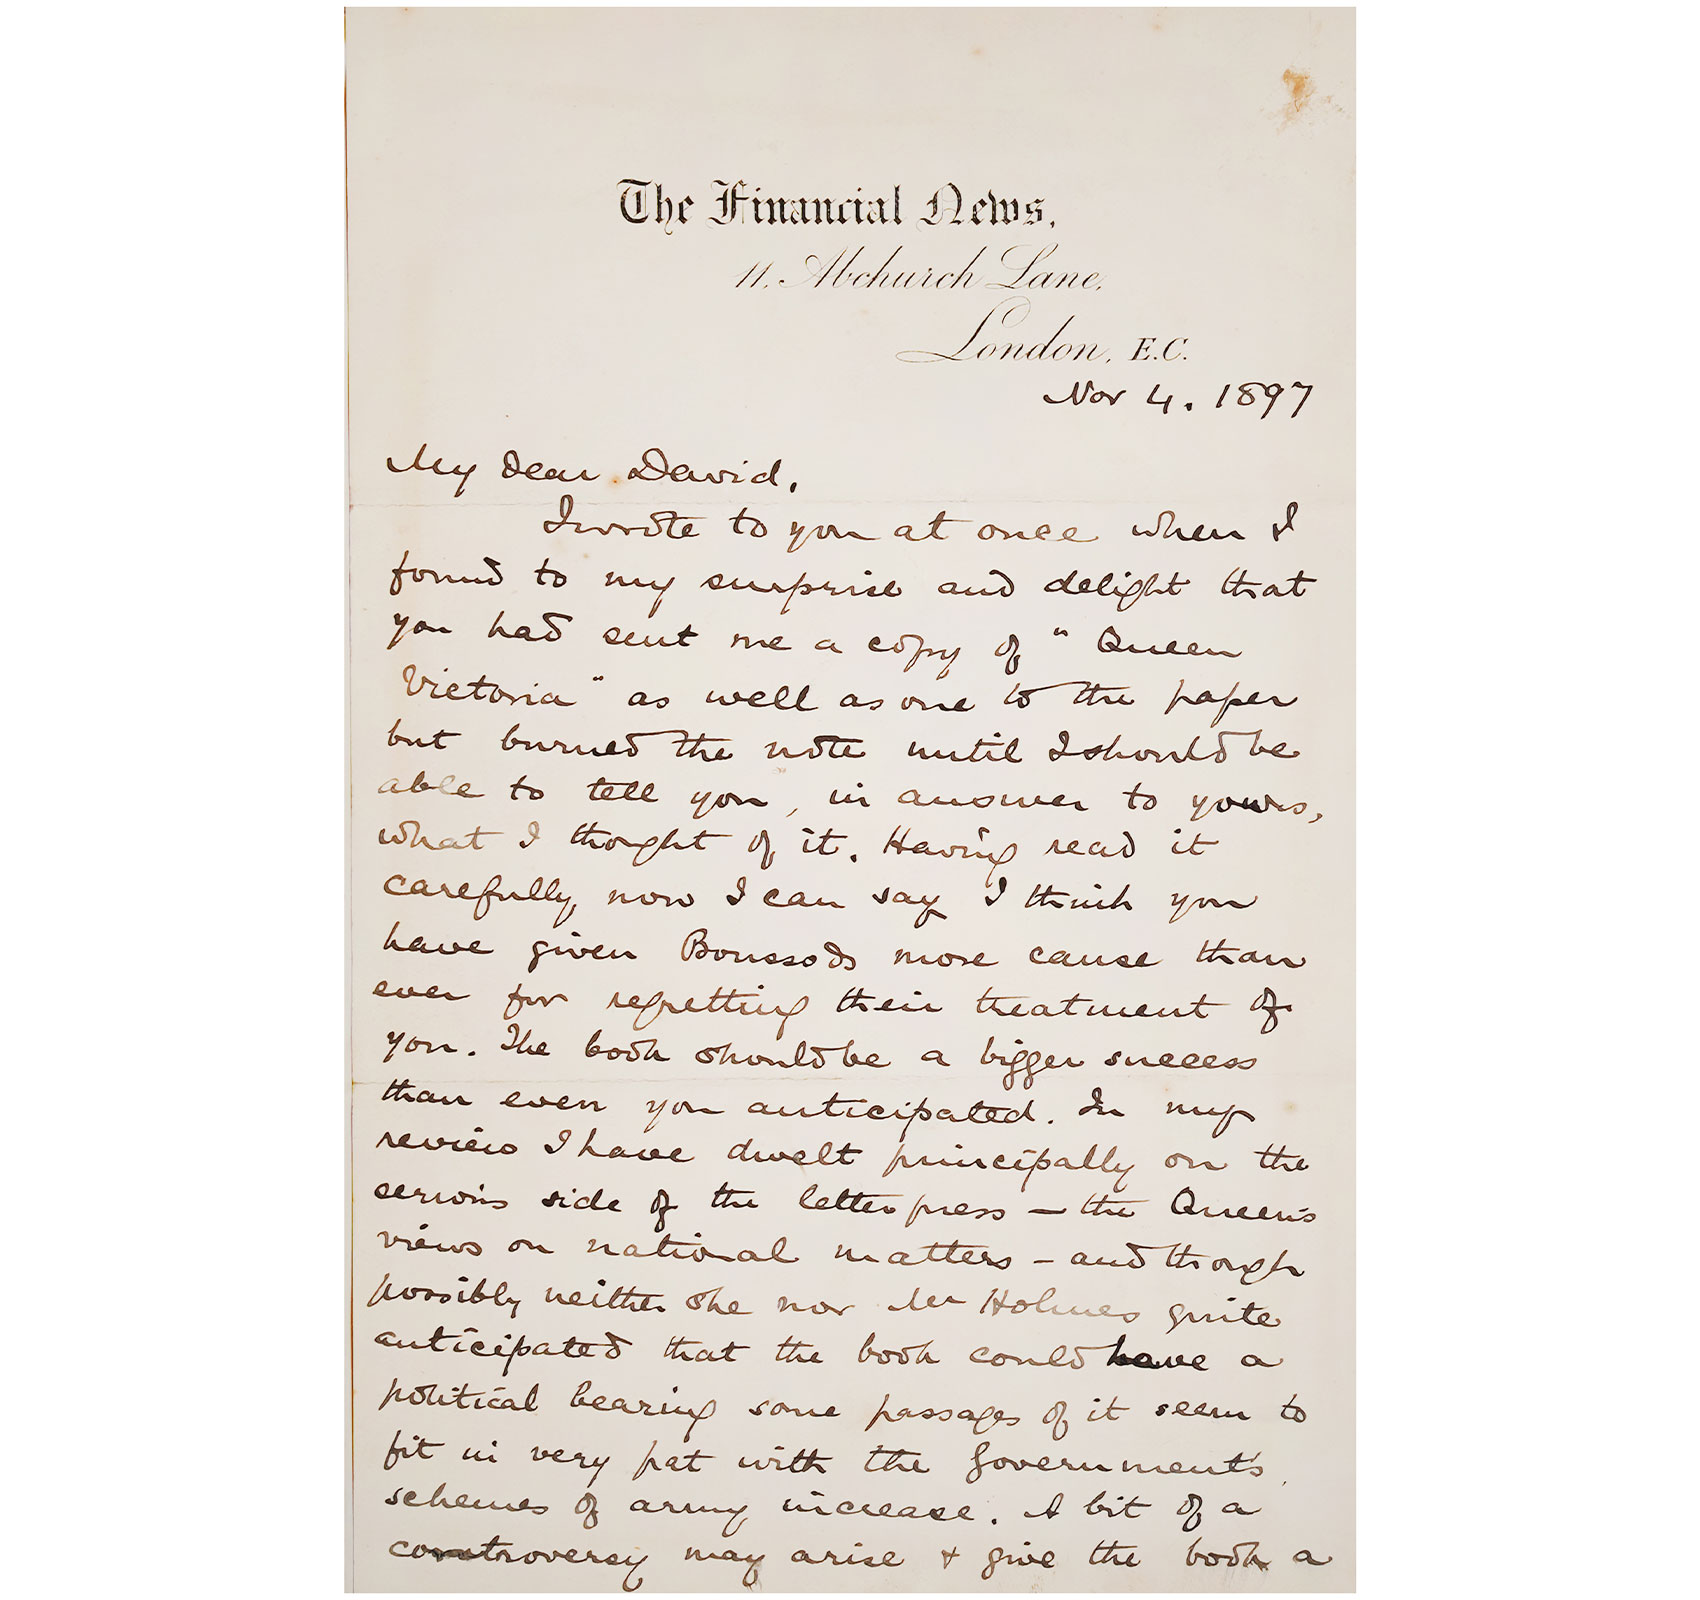 The Financial News,
11, Abchurch Lane,
London, E.C.
Nov 4. 1897
My dear David,
I wrote to you at once when I
found to my surprise and delight that
you had sent me a copy of "Queen
Victoria" as well as one to the paper
but burned the note until I should be
able to tell you, in answer to yours,
what I thought of it. Having read it
carefully, now I can say I think you
have given Boussods more cause than
ever for regretting their treatment of
you. The book should be a bigger success
than even you anticipated. In my
review I have dwelt principally on the
serious side of the letterpress – the Queen's
views on national matters – and though
possibly neither she nor Mr Holmes quite
anticipated that the book could have a
political bearing some passages of it seem to
fit in very pat with the Government's
schemes of army increase. A bit of a
controversy may arise + give the book a